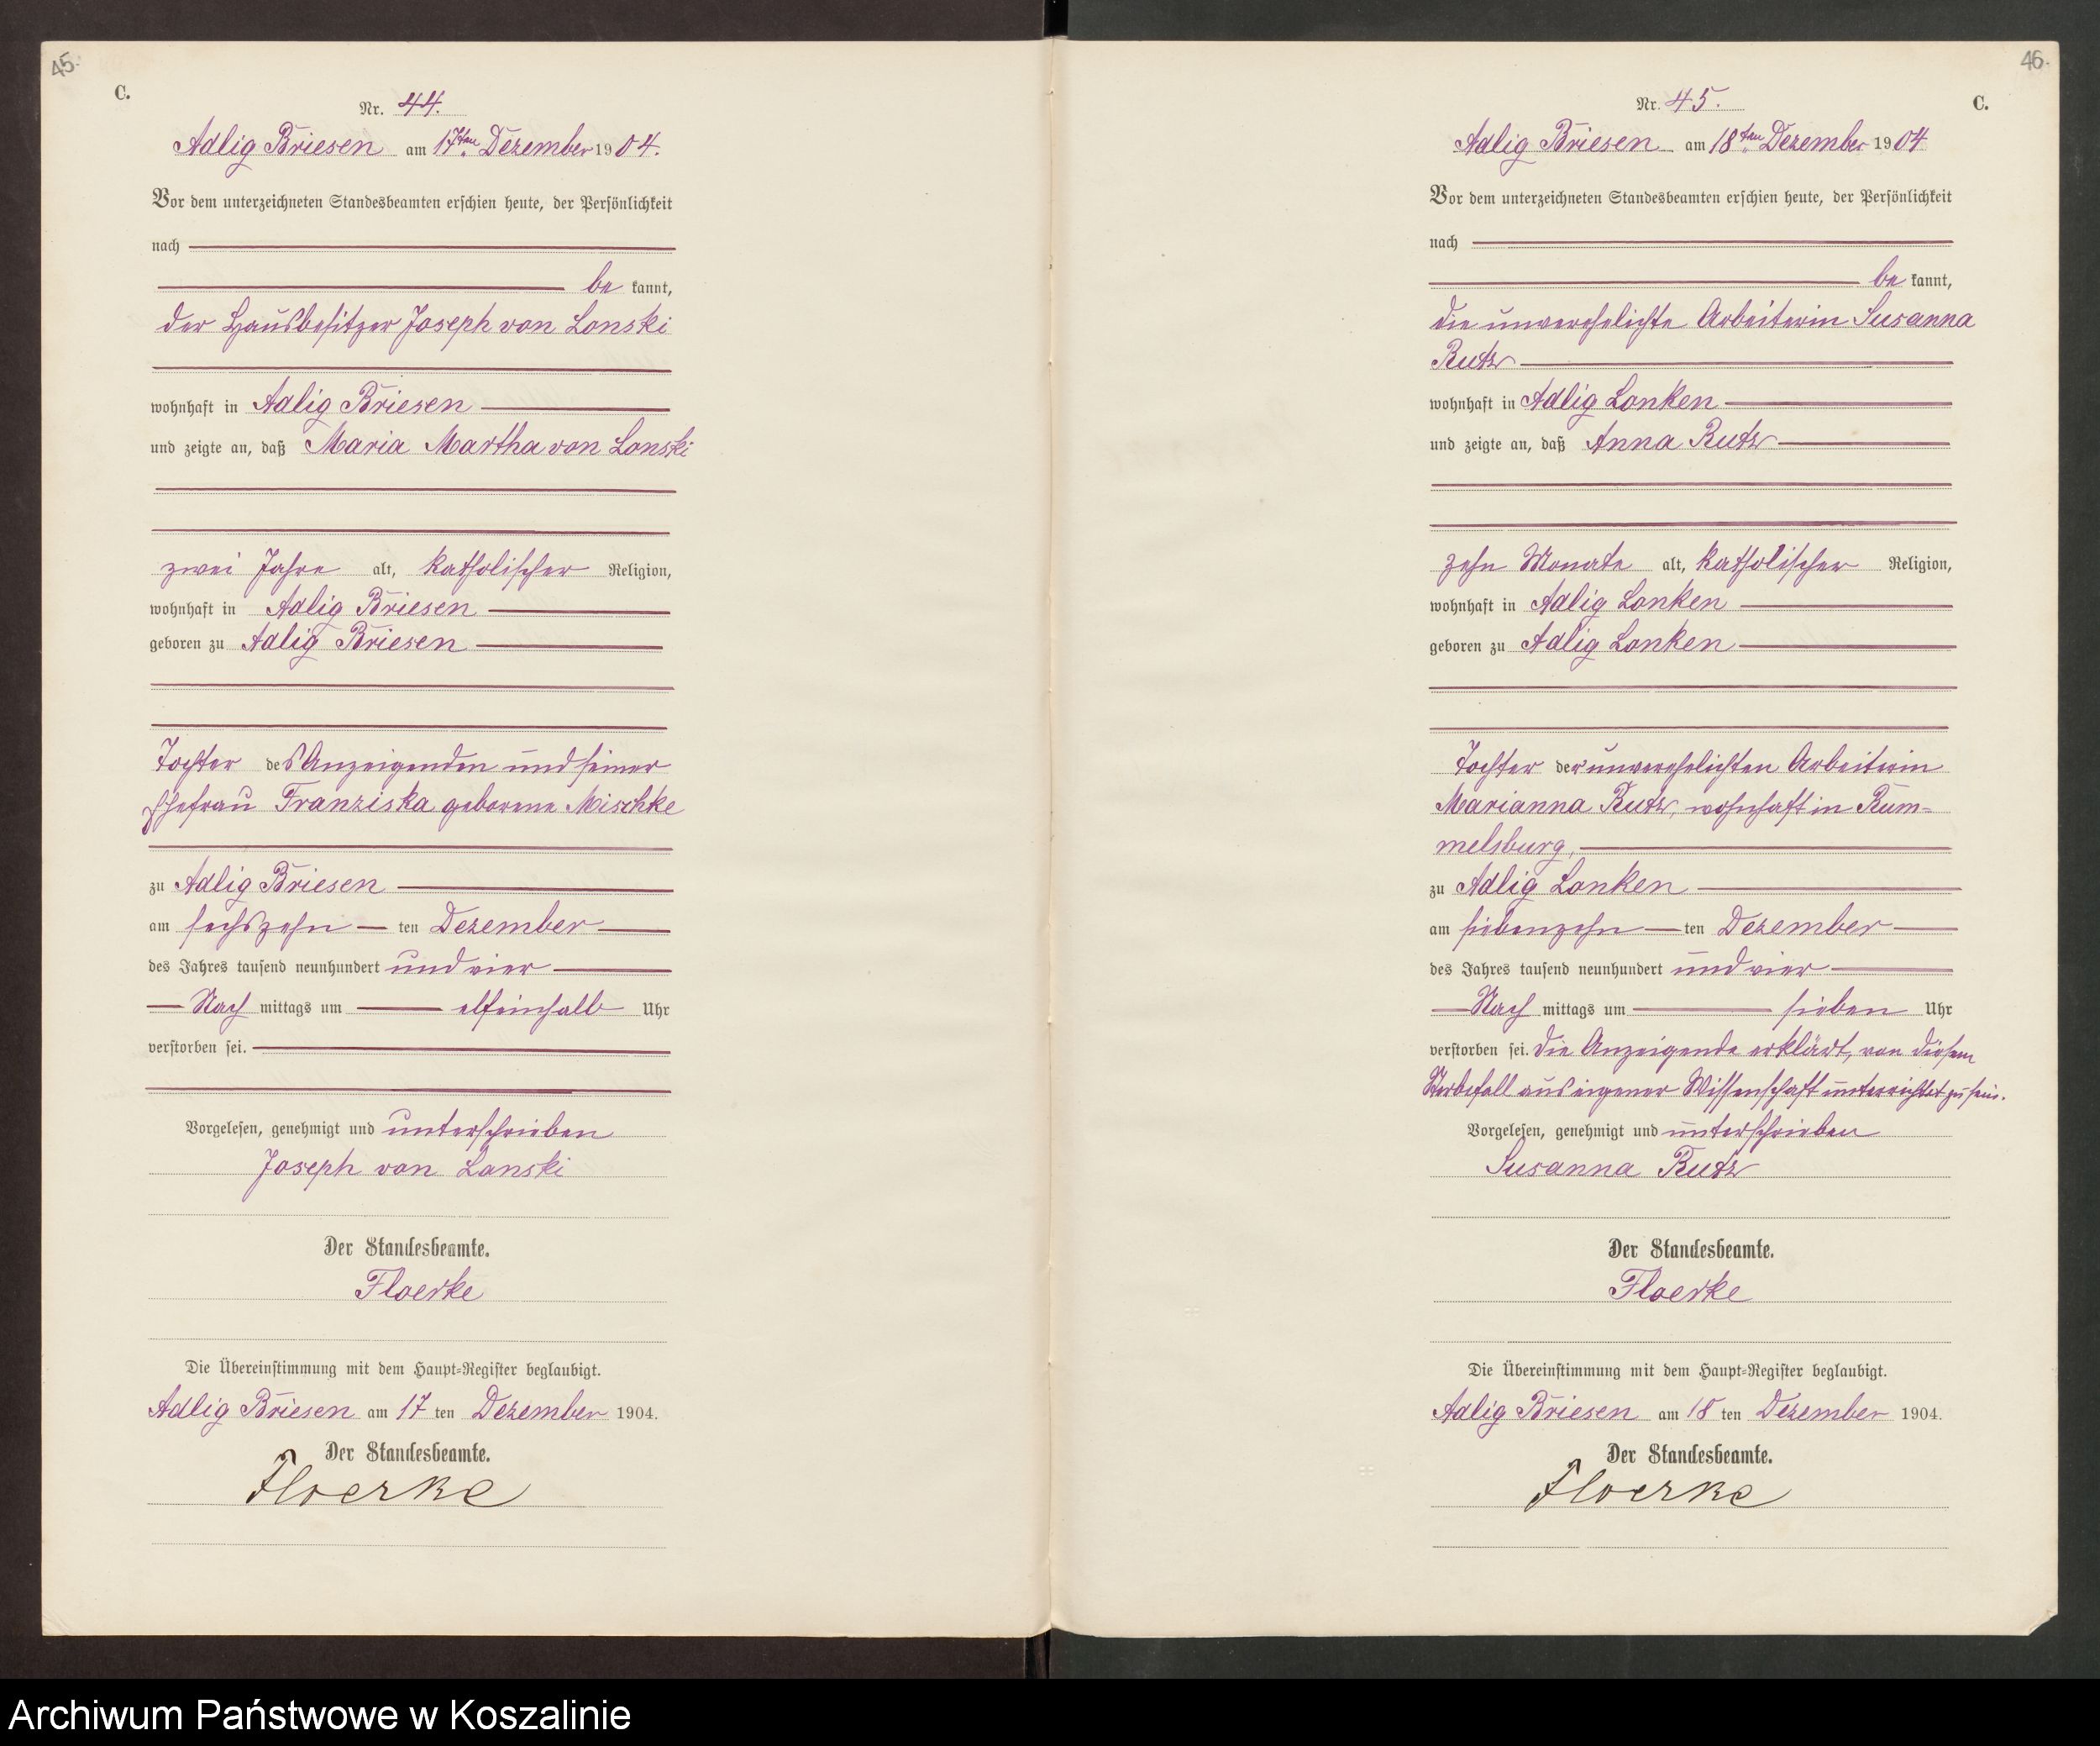 45.
C.
Nr. 44.
Adlig Briesen am 17ten Dezember 1904.
Vor dem unterzeichneten Standesbeamten erschien heute, der Persönlichkeit
nach
be kannt,
der Hausbesitzer Joseph von Lonski
wohnhaft in Adlig Briesen
und zeigte an, daß Maria Martha von Lonski
zwei Jahre alt, katholischer Religion,
wohnhaft in Adlig Briesen
geboren zu Adlig Briesen
Tochter des Anzeigenden und seiner
Ehefrau Franziska geborene Mischke
zu Adlig Briesen
am sechszehn ten Dezember
des Jahres tausend neunhundert und vier
Nach mittags um elfeinhalb Uhr
verstorben sei.
Vorgelesen, genehmigt und unterschrieben
Joseph von Lonski
Der Standesbeamte.
Floerke
Die Übereinstimmung mit dem Haupt-Register beglaubigt.
Adlig Briesen am 17 ten Dezember 1904.
Der Standesbeamte.
Floerke
46.
C.
Nr. 45.
Adlig Briesen am 18ten Dezember 1904
Vor dem unterzeichneten Standesbeamten erschien heute, der Persönlichkeit
nach
be kannt,
die unverehelichte Arbeiterin Susanna
Rutz
wohnhaft in Adlig Lonken
und zeigte an, daß Anna Rutz
zehn Monate alt, katholischer Religion,
wohnhaft in Adlig Lonken
geboren zu Adlig Lonken
Tochter der unverehelichten Arbeiterin
Marianna Rutz, wohnhaft in Rum-
melsburg,
zu Adlig Lonken
am siebenzehn ten Dezember
des Jahres tausend neunhundert und vier
Nach mittags um sieben Uhr
verstorben sei. Die Anzeigende erklärt, von diesem
Sterbefall aus eigener Wissenschaft unterrichtet zu sein.
Vorgelesen, genehmigt und unterschrieben
Susanna Rutz
Der Standesbeamte.
Floerke
Die Übereinstimmung mit dem Haupt-Register beglaubigt.
Adlig Briesen am 18 ten Dezember 1904.
Der Standesbeamte.
Floerke
Archiwum Państwowe w Koszalinie